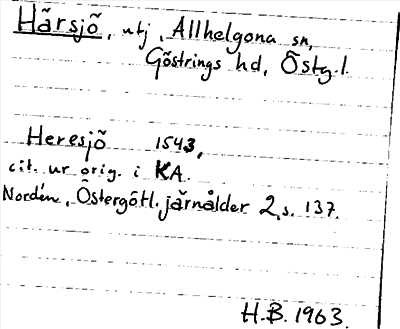 Härsjö, utj, Allhelgona sn,
Göstrings hd, Östg.l.
Heresjö 1543,
cit. ur orig. i KA.
Nordén, Östergötl. järnålder 2, s. 137.
H.B. 1963.